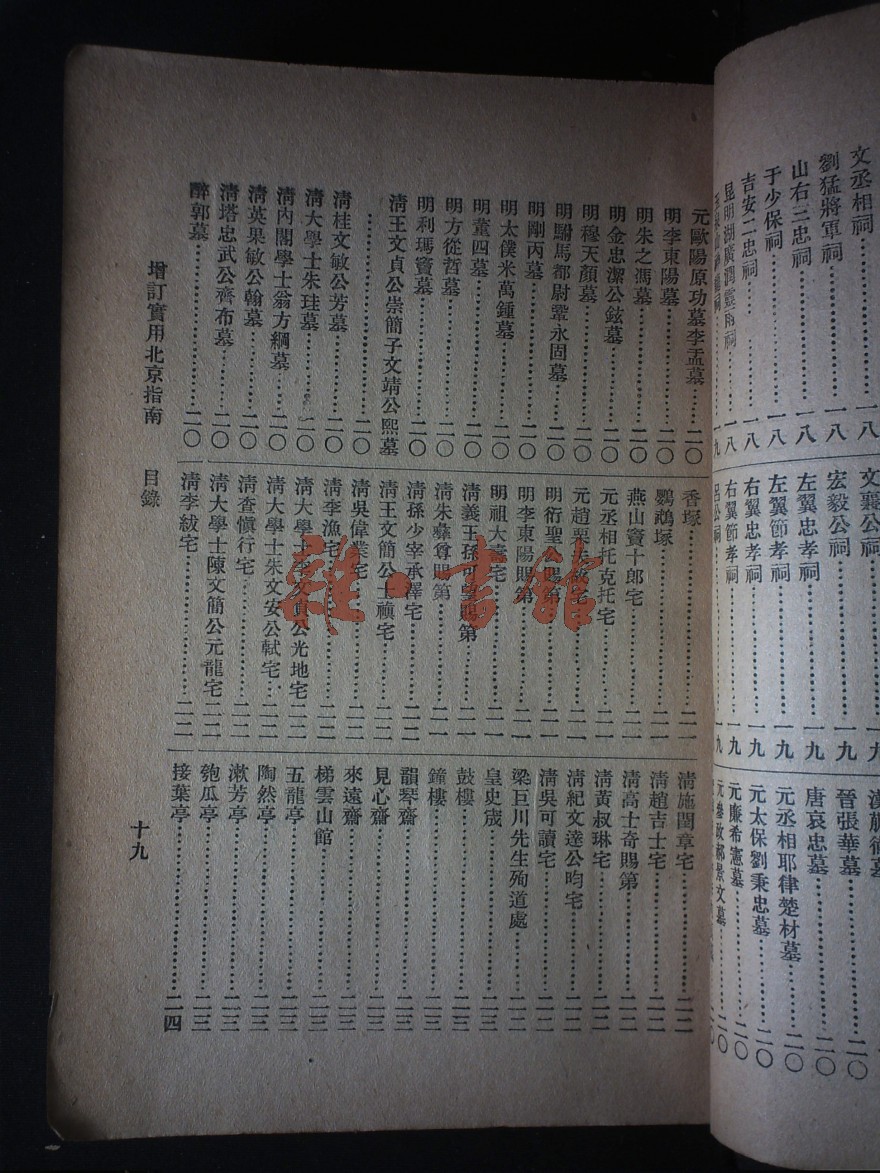 文丞相祠……一八
劉猛將軍祠……一八
山右三忠祠……一八
于少保祠……一八
吉安二忠祠……一八
昆明湖廣潤靈雨祠……一八
文襄公祠……一九
宏毅公祠……一九
左翼忠孝祠……一九
左翼節孝祠……一九
右翼忠孝祠……一九
右翼節孝祠……一九
呂公祠
晉張華墓……二〇
唐哀忠墓……二〇
元丞相耶律楚材墓……二〇
元太保劉秉忠墓……二〇
元廉希憲墓……二〇
元參政郝景文墓……二〇
元歐陽原功墓李孟墓……二〇
明李東陽墓……二〇
明朱之馮墓……二〇
明金忠潔公鉉墓……二〇
明穆天顏墓……二〇
明駙馬都尉鞏永固墓……二〇
明剛丙墓……二〇
明太僕米萬鍾墓……二〇
明董四墓……二〇
明方從哲墓……二〇
明利瑪竇墓……二〇
清王文貞公崇簡子文靖公熙墓
……二〇
清桂文敏公芳墓……二〇
清大學士朱珪墓……二〇
清內閣學士翁方綱墓……二〇
清英果敏公翰墓……二〇
清塔忠武公齊布墓……二〇
醉郭墓……二〇
香塚……二一
鸚鵡塚……二一
燕山竇十郎宅……二一
元丞相托克托宅……二一
元趙栗夫故宅……二一
明衍聖公賜第……二一
明李東陽賜第……二一
明祖大壽宅……二一
清義王孫可望賜第……二一
清朱彝尊賜第……二一
清孫少宰承澤宅……二二
清王文簡公士禎宅……二二
清吳偉業宅……二二
清李漁宅……二二
清大學士李文貞公光地宅……二二
清大學士朱文安公軾宅……二二
清查慎行宅……二二
清大學士陳文簡公元龍宅……二二
清李紱宅……二二
清施閏章宅……二二
清趙吉士宅……二二
清高士奇賜第……二二
清黃叔琳宅……二二
清紀文達公昀宅……二二
清吳可讀宅……二二
梁巨川先生殉道處……二二
皇史宬……二三
鼓樓……二三
鐘樓……二三
韻琴齋……二三
見心齋……二三
來遠齋……二三
梯雲山館……二三
五龍亭……二三
陶然亭……二三
漱芳亭……二三
匏瓜亭……二三
接葉亭……二四
增訂實用北京指南 目錄
十九
雜·書館